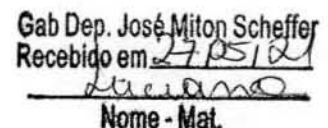 Gab Dep. José Milton Scheffer
Recebido em 27/05/21
Luciano
Nome - Mat.